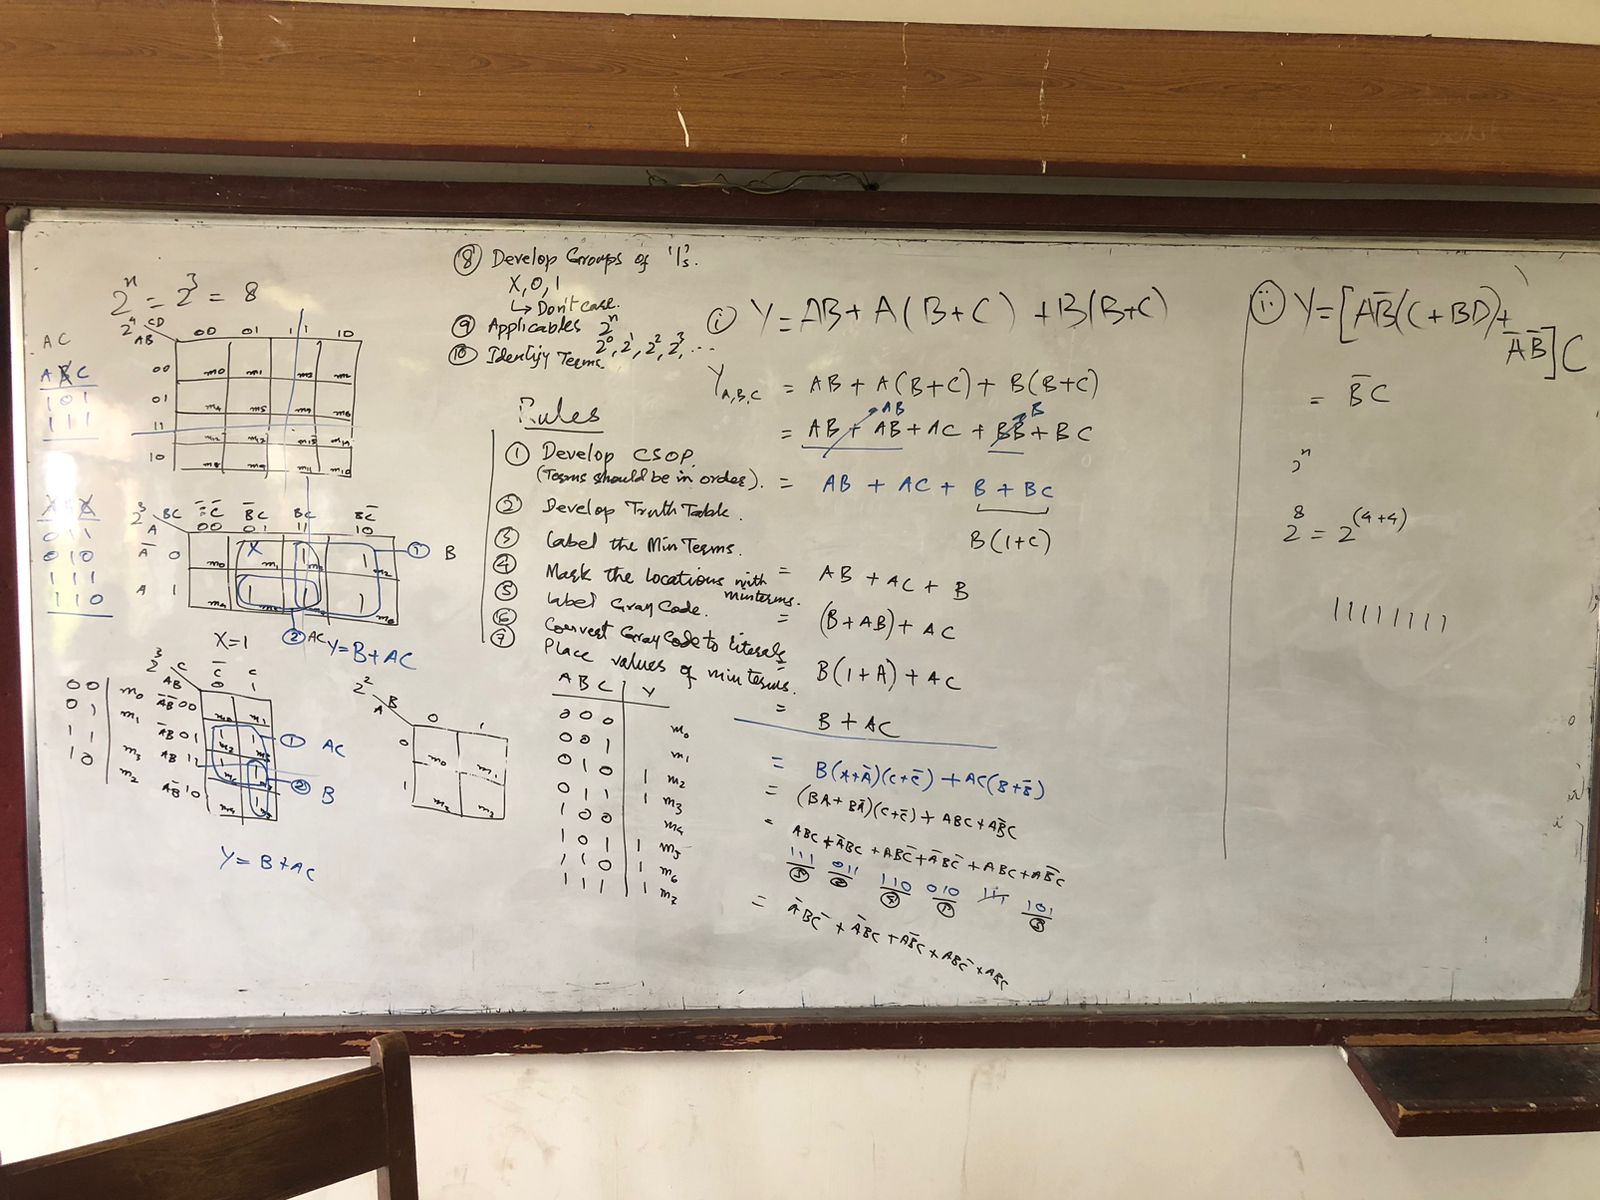 2ⁿ = 2³ = 8
2⁴ CD
AB
00 01 11 10
00 m₀ m₁ m₃ m₂
01 m₄ m₅
11 m₁₂ m₁₃ m₁₅ m₁₄
10 m₈ m₉ m₁₁ m₁₀
AC
ABC
101
111
011
010
111
110
2³ BC B̅C BC BC̅
A 00 01 11 10
A̅ 0 m₀ X m₁ 1 1 m₂
A 1 m₄ 1 1 1
① B
② AC
Y=B+AC
X=1
2³ C C̅ C
AB 0 1
A̅B̅ 00 m₀ m₁
A̅B 01 1 m₂ 1 m₃
AB 11 1 1
AB̅ 10 m₄ 1
① AC
② B
00 m₀
01 m₁
11 m₃
10 m₂
Y=B+AC
2² B
A 0 1
0 m₀ m₁
1 m₂ m₃
⑧ Develop Groups of '1's.
X,0,1
↳ Don't care.
⑨ Applicables 2ⁿ
2⁰, 2¹, 2², 2³, ...
⑩ Identify Terms.
Rules
① Develop CSOP.
(Terms should be in order).
② Develop Truth Table.
③ Label the Min Terms.
④ Mark the locations with minterms.
⑤ Label Gray Code.
⑥ Convert Gray Code to literals
⑦ Place values of min terms.
A B C Y
0 0 0 m₀
0 0 1 m₁
0 1 0 1 m₂
0 1 1 1 m₃
1 0 0 m₄
1 0 1 1 m₅
1 1 0 1 m₆
1 1 1 1 m₇
ⓘ Y=AB+A(B+C)+B(B+C)
Y A,B,C = AB+A(B+C)+B(B+C)
AB B
= AB+AB+AC+BB+BC
= AB+AC+B+BC
B(1+C)
= AB+AC+B
= (B+AB)+AC
= B(1+A)+AC
= B+AC
= B(A+A̅)(C+C̅)+AC(B+B̅)
= (BA+BA̅)(C+C̅)+ABC+AB̅C
= ABC+A̅BC+ABC̅+A̅BC̅+ABC+AB̅C
111 011 110 010 111 101
= A̅BC̅+A̅BC+AB̅C+ABC̅+ABC
ⓘⓘ Y=[AB̅(C+BD)+
A̅B̅]C
= B̅C
2ⁿ
2⁸ = 2⁽⁴⁺⁴⁾
11111111